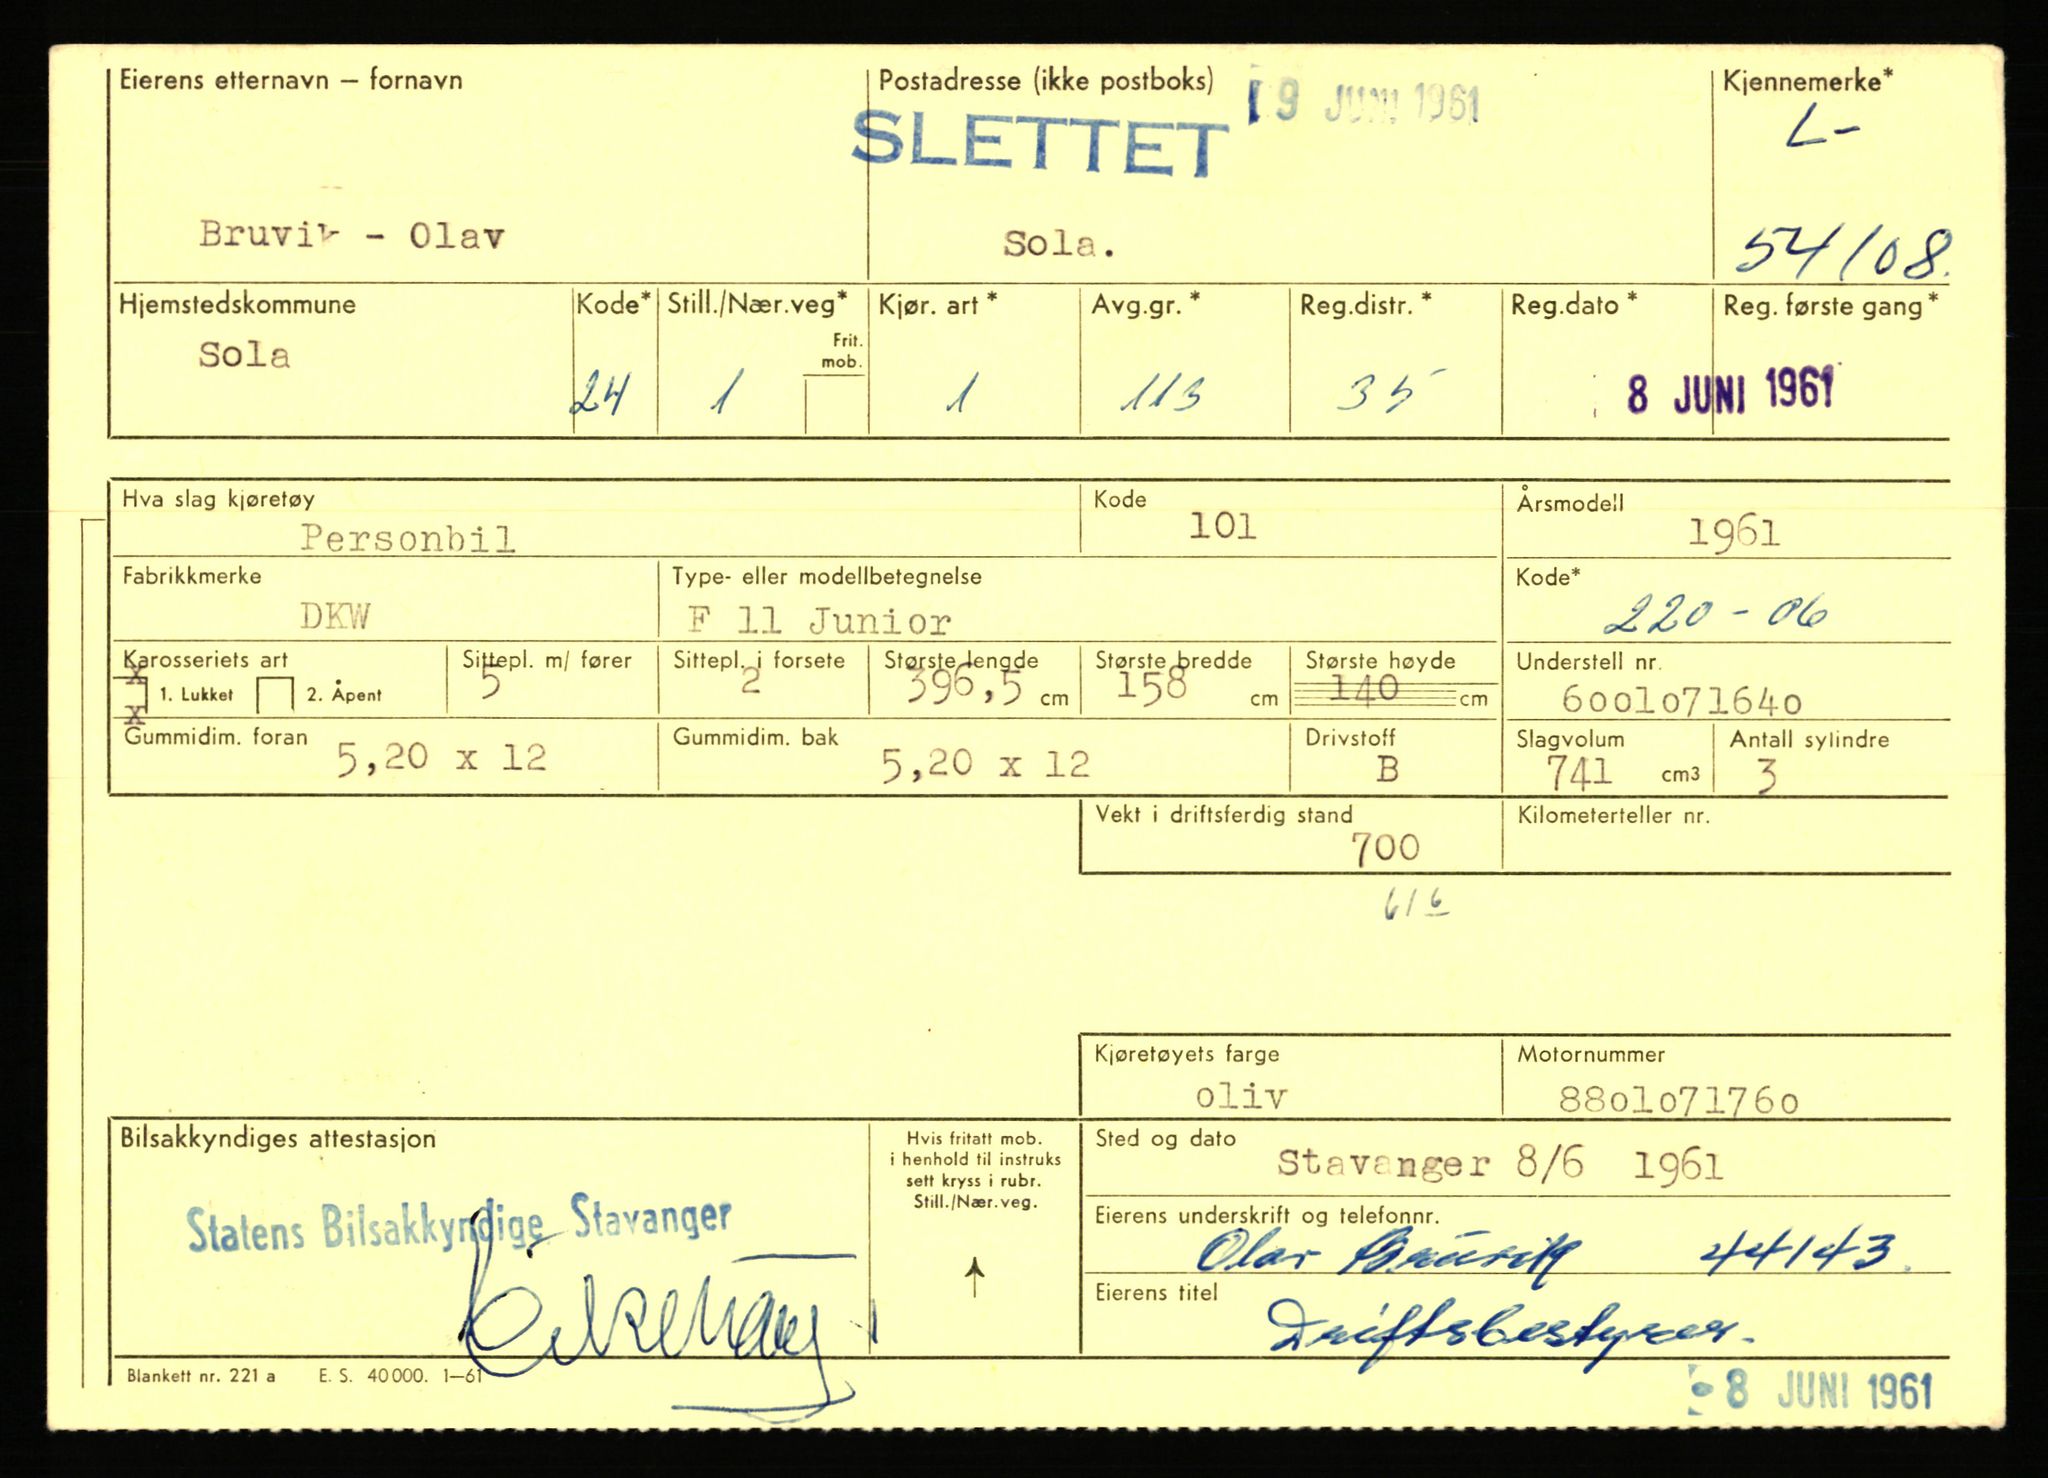 Eierens etternavn – fornavn
Postadresse (ikke postboks)
19 JUNI 1961
Kjennemerke*
SLETTET
L-
Bruvik - Olav
Sola.
54108.
Hjemstedskommune
Kode*
Still./Nær.veg*
Kjør. art *
Avg.gr. *
Reg.distr. *
Reg.dato *
Reg. første gang *
Frit.
mob.
Sola
24
1
1
113
35
8 JUNI 1961
Hva slag kjøretøy
Personbil
Kode
101
Årsmodell
1961
Fabrikkmerke
DKW
Type- eller modellbetegnelse
F 11 Junior
Kode*
220-06
Karosseriets art
x
1. Lukket
2. Åpent
x
Sittepl. m/ fører
5
Sittepl. i forsete
2
Største lengde
396,5 cm
Største bredde
158 cm
Største høyde
140 cm
Understell nr.
6001071640
Gummidim. foran
5,20 x 12
Gummidim. bak
5,20 x 12
Drivstoff
B
Slagvolum
741 cm3
Antall sylindre
3
Vekt i driftsferdig stand
700
Kilometerteller nr.
616
Kjøretøyets farge
oliv
Motornummer
8801071760
Bilsakkyndiges attestasjon
Statens Bilsakkyndige Stavanger
Hvis fritatt mob.
i henhold til instruks
sett kryss i rubr.
Still./Nær.veg.
Sted og dato
Stavanger 8/6 1961
Eierens underskrift og telefonnr.
Olav Bruvik 44143.
Eierens titel
Driftsbestyrer.
Blankett nr. 221 a E. S. 40 000. 1–61
8 JUNI 1961